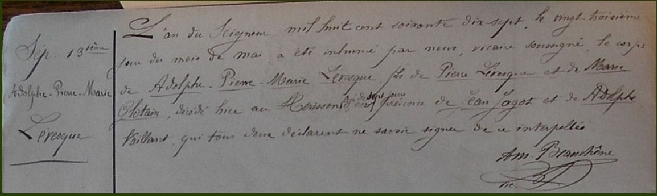 Sep. 13ième
Adolphe-Pierre-Marie
Levêque
L'an du Seigneur mil huit cent soixante dix sept, le vingt-troisième
jour du mois de mai a été inhumé par nous, vicaire soussigné, le corps
de Adolphe-Pierre-Marie Levesque fils de Pierre Levesque et de Marie
décédé hier au présence de Jean Jagot et de Adolphe
Vaillant, qui tous deux déclarent ne savoir signer de ce interpellés
Am.
vic